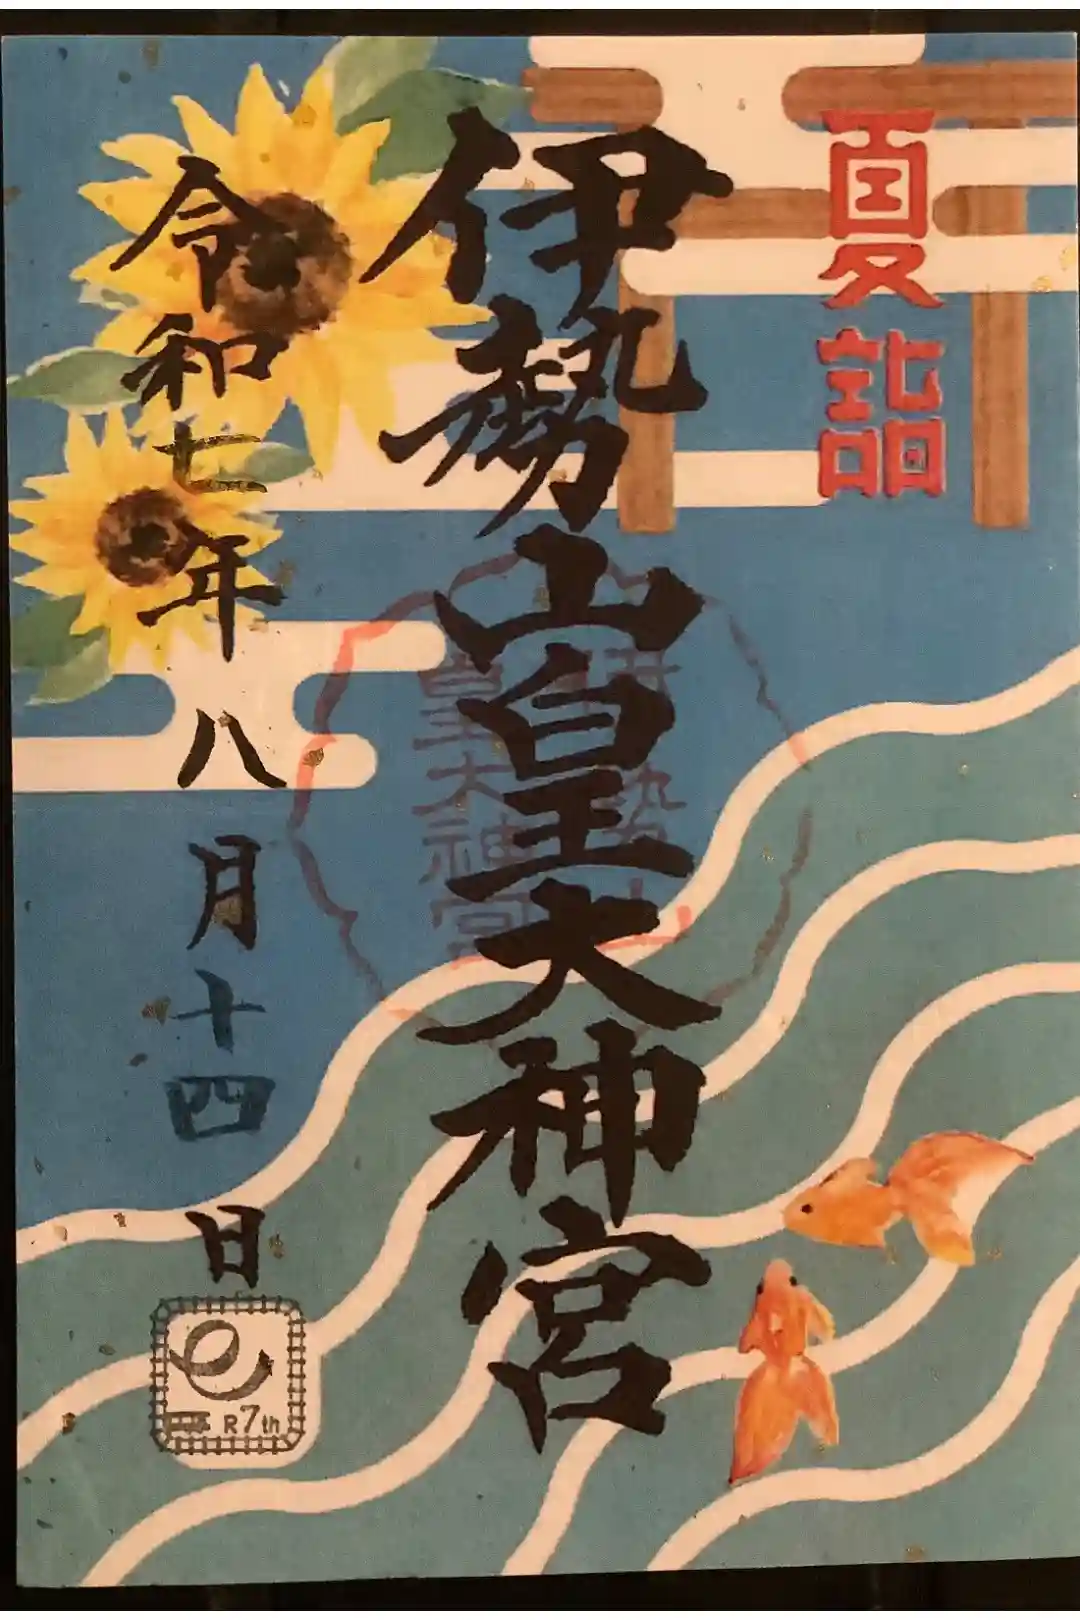 夏詣
伊勢山皇大神宮
令和七年八月十四日
伊勢山
皇大神宮
R7th